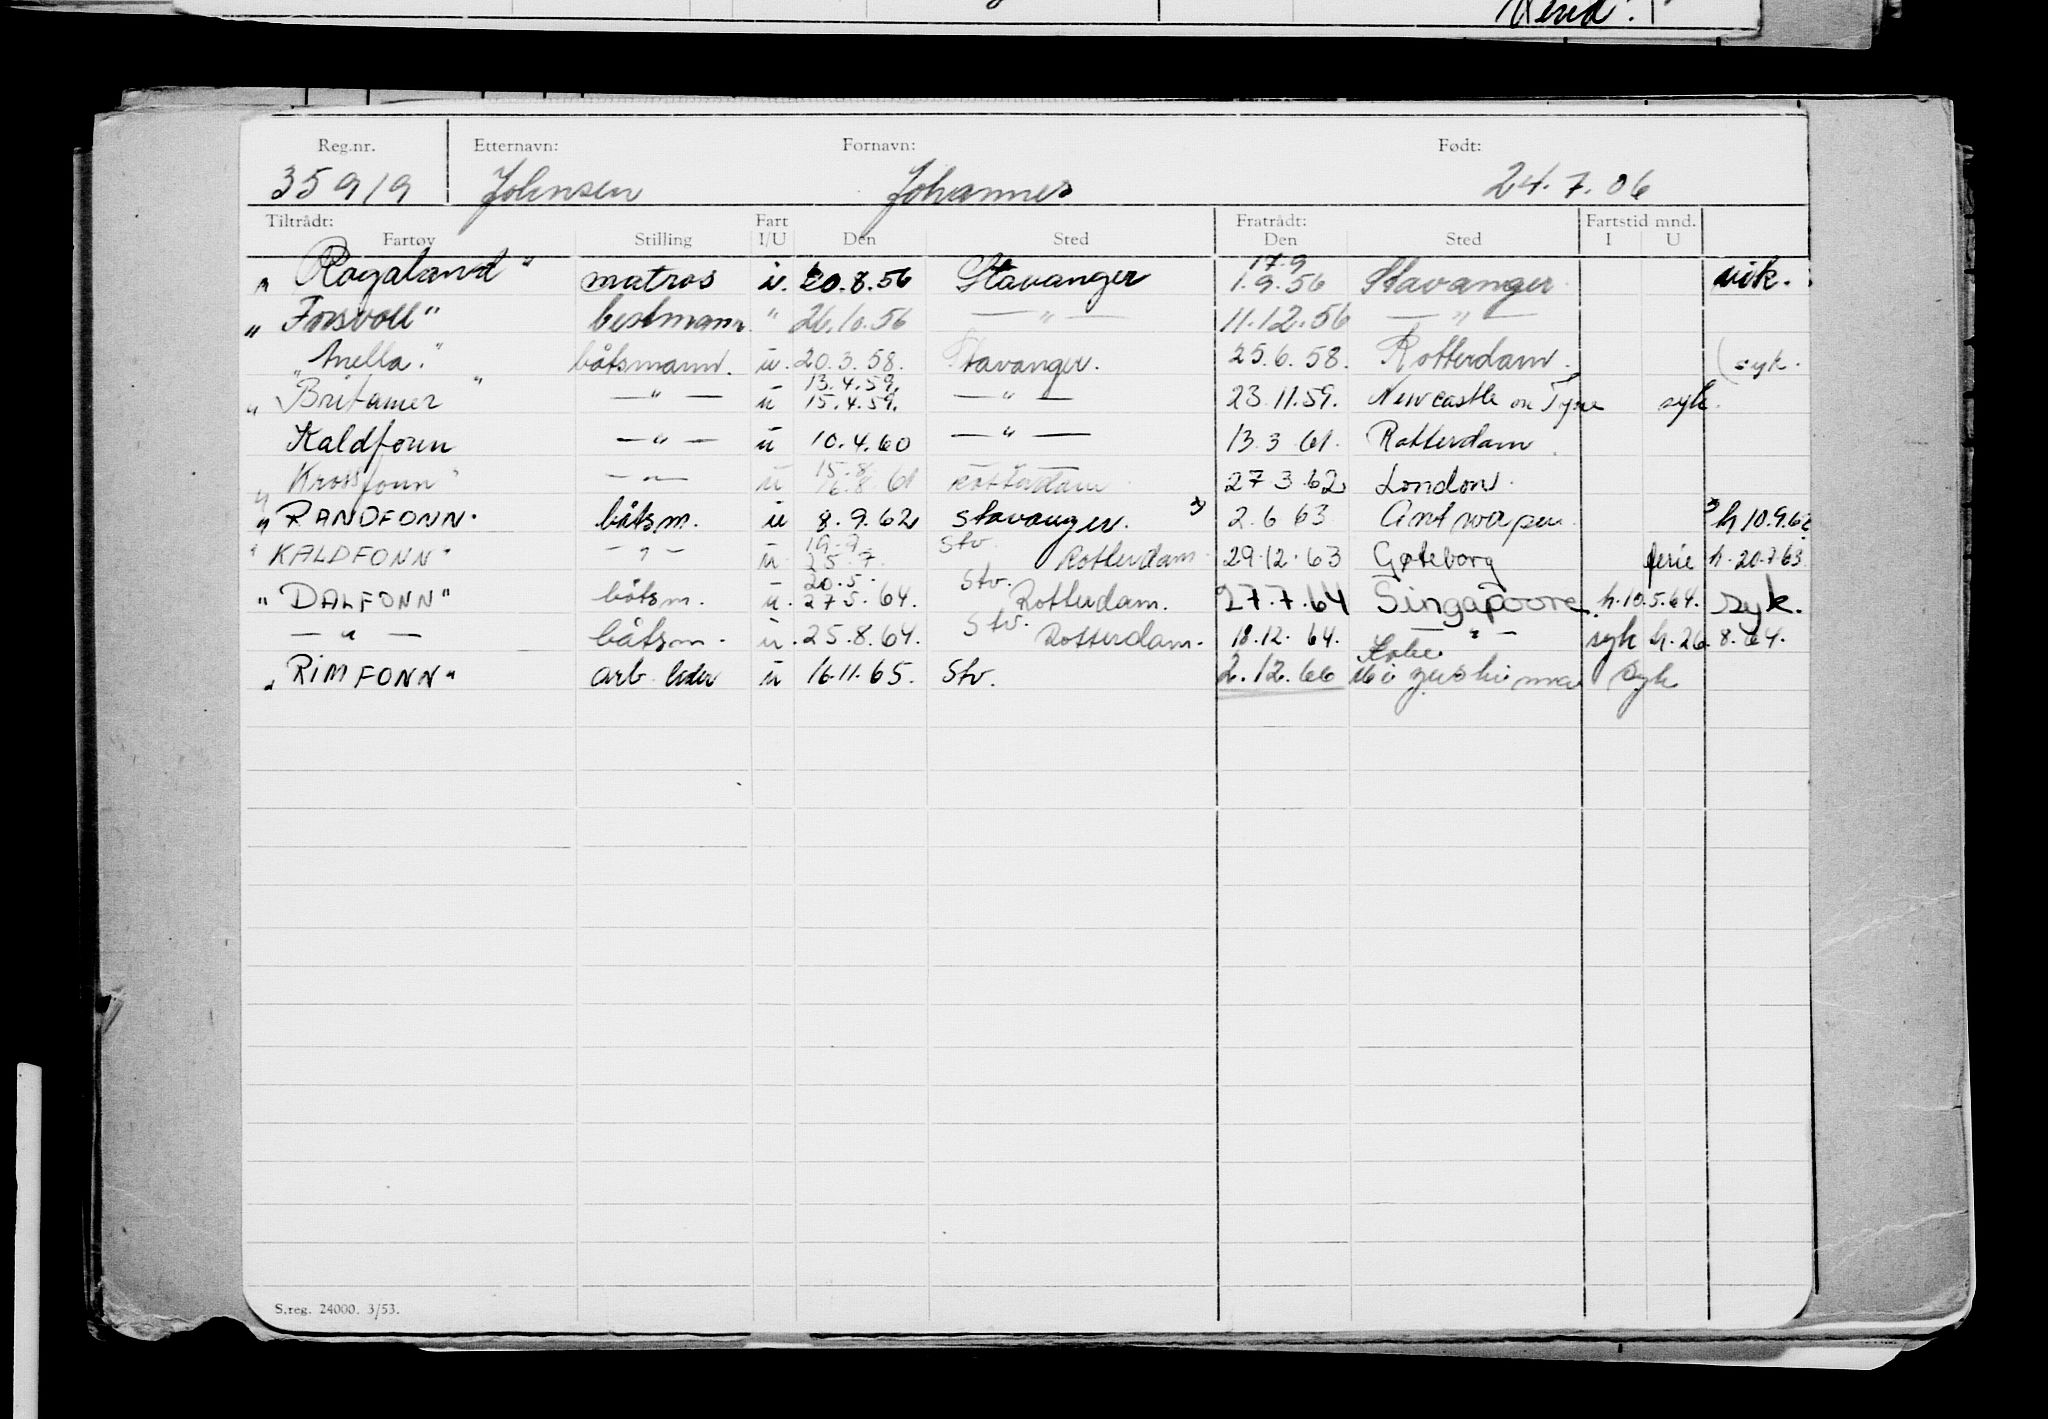 Vend.
Reg.nr. Etternavn: Fornavn: Født:
35919 Johnsen Johannes 24.7.06
Tiltrådt: Fart Fratrådt: Fartstid mnd.
Fartøy Stilling I/U Den Sted Den Sted I U
17.9
"Rogaland" matros u. 20.8.56 Stavanger 1.9.56 Stavanger vik.
"Forsvoll" bestmann " 26.10.56 — " — 11.12.56 — " —
"Anella." båtsmann. u. 20.3.58. Stavanger. 25.6.58. Rotterdam. (syk.
13.4.59.
"Britamer" — " — u 15.4.59. — " — 23.11.59. Newcastle on Tyne syk.
Kaldfonn — " — u 10.4.60 — " — 13.3.61. Rotterdam.
15.8.
"Krossfonn" — " — u 16.8.61 Rotterdam 27.3.62 London.
"RANDFONN. båtsm. u 8.9.62 Stavanger. *) 2.6.63 Antwerpen *h 10.9.62
19.7. Stv.
"KALDFONN" — " — u. 25.7. Rotterdam. 29.12.63 Gøteborg ferie h. 20.7.63
20.5. Stv.
"DALFONN" båtsm. u. 27.5.64. Rotterdam. 27.7.64 Singapoore. h. 10.5.64. syk.
Stv.
— " — båtsm. u. 25.8.64. Rotterdam. 18.12.64. — " — syk h. 26.8.64.
Kobe
"RIMFONN" arb. leder u 16.11.65. Stv. 2.12.66 Mizushima syk
S.reg. 24000. 3/53.